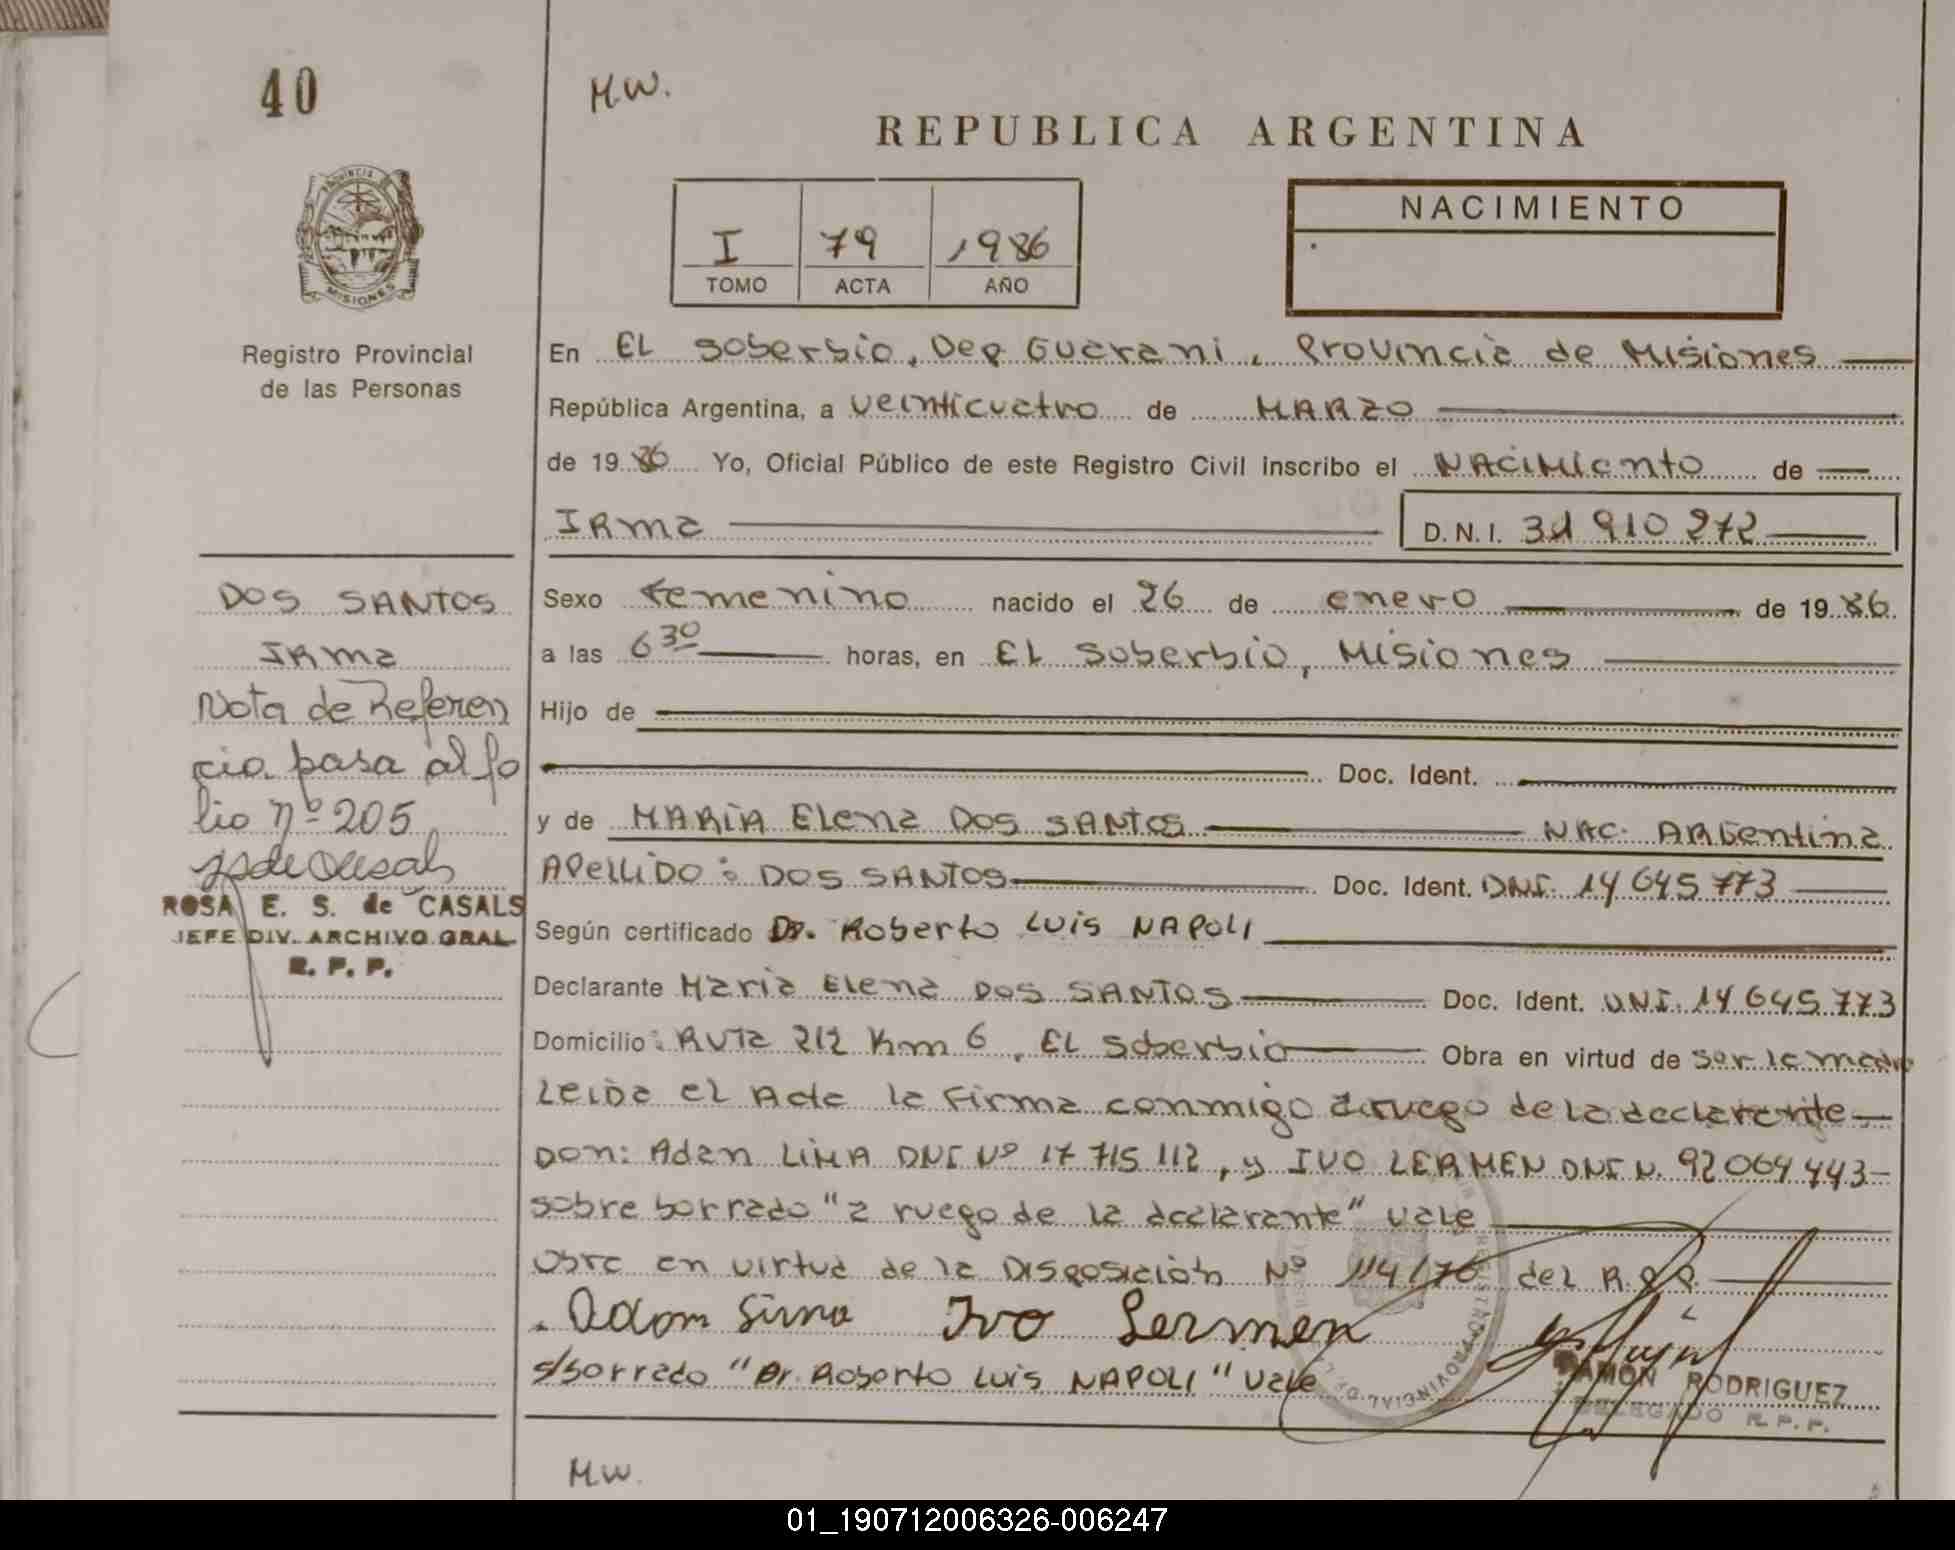 40
M.W.
REPUBLICA ARGENTINA
NACIMIENTO
I 79 1986
TOMO ACTA AÑO
PROVINCIA DE
MISIONES
Registro Provincial
de las Personas
En EL Soberbio, Dep Guarani, Provincia de Misiones
República Argentina, a veinticuatro de MARZO
de 1986 Yo, Oficial Público de este Registro Civil inscribo el NACIMIENTO de
IRMA
D.N.I. 31 910 272
DOS SANTOS
IRMA
Nota de Referen
cia pasa al fo
lio nº 205
ROSA E. S. de CASALS
JEFE DIV. ARCHIVO GRAL.
R. P. P.
Sexo Femenino nacido el 26 de enero de 1986.
a las 6 30 horas, en EL Soberbio, Misiones
Hijo de
Doc. Ident.
y de MARIA Elena DOS SANTOS NAC. ARGentina
APELLIDO: DOS SANTOS Doc. Ident. DNI. 14 645 773
Según certificado Dr. Roberto LUIS NAPOLI
Declarante Maria Elena DOS SANTOS Doc. Ident. D.N.I. 14 645 773
Domicilio: RUTA 212 Km 6, EL Soberbio Obra en virtud de ser la madre
Leida el Acta la Firma conmigo a ruego de la declarante
Don: Adan LIMA DNI Nº 17 715 112, y IVO LERMEN DNI N. 92 064 443
sobre borrado "a ruego de la declarante" vale
Obra en virtud de la DISPOSICIÓN Nº 114/76 del R.P.P.
Adam Lima Ivo Lermen
s/borrado "Dr. Roberto LUIS NAPOLI" vale
RAMON RODRIGUEZ
DELEGADO R. P. P.
M.W.
01_190712006326-006247